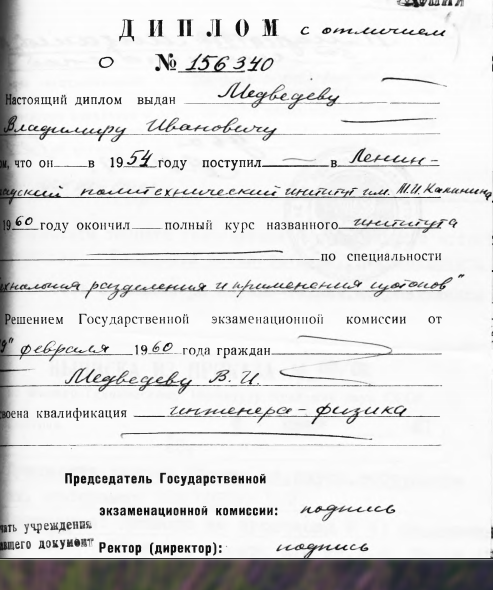 КОПИЯ
ДИПЛОМ с отличием
О № 156340
Настоящий диплом выдан Медведеву
Владимиру Ивановичу
ом, что он в 1954 году поступил в Ленин-
градский политехнический институт им. М.И. Калинина
1960 году окончил полный курс названного института
по специальности
ехнология разделения и применения изотопов"
Решением Государственной экзаменационной комиссии от
февраля 1960 года граждан
Медведеву В. И.
своена квалификация инженера-физика
Председатель Государственной
экзаменационной комиссии: подпись
чать учреждения
авшего документ Ректор (директор): подпись